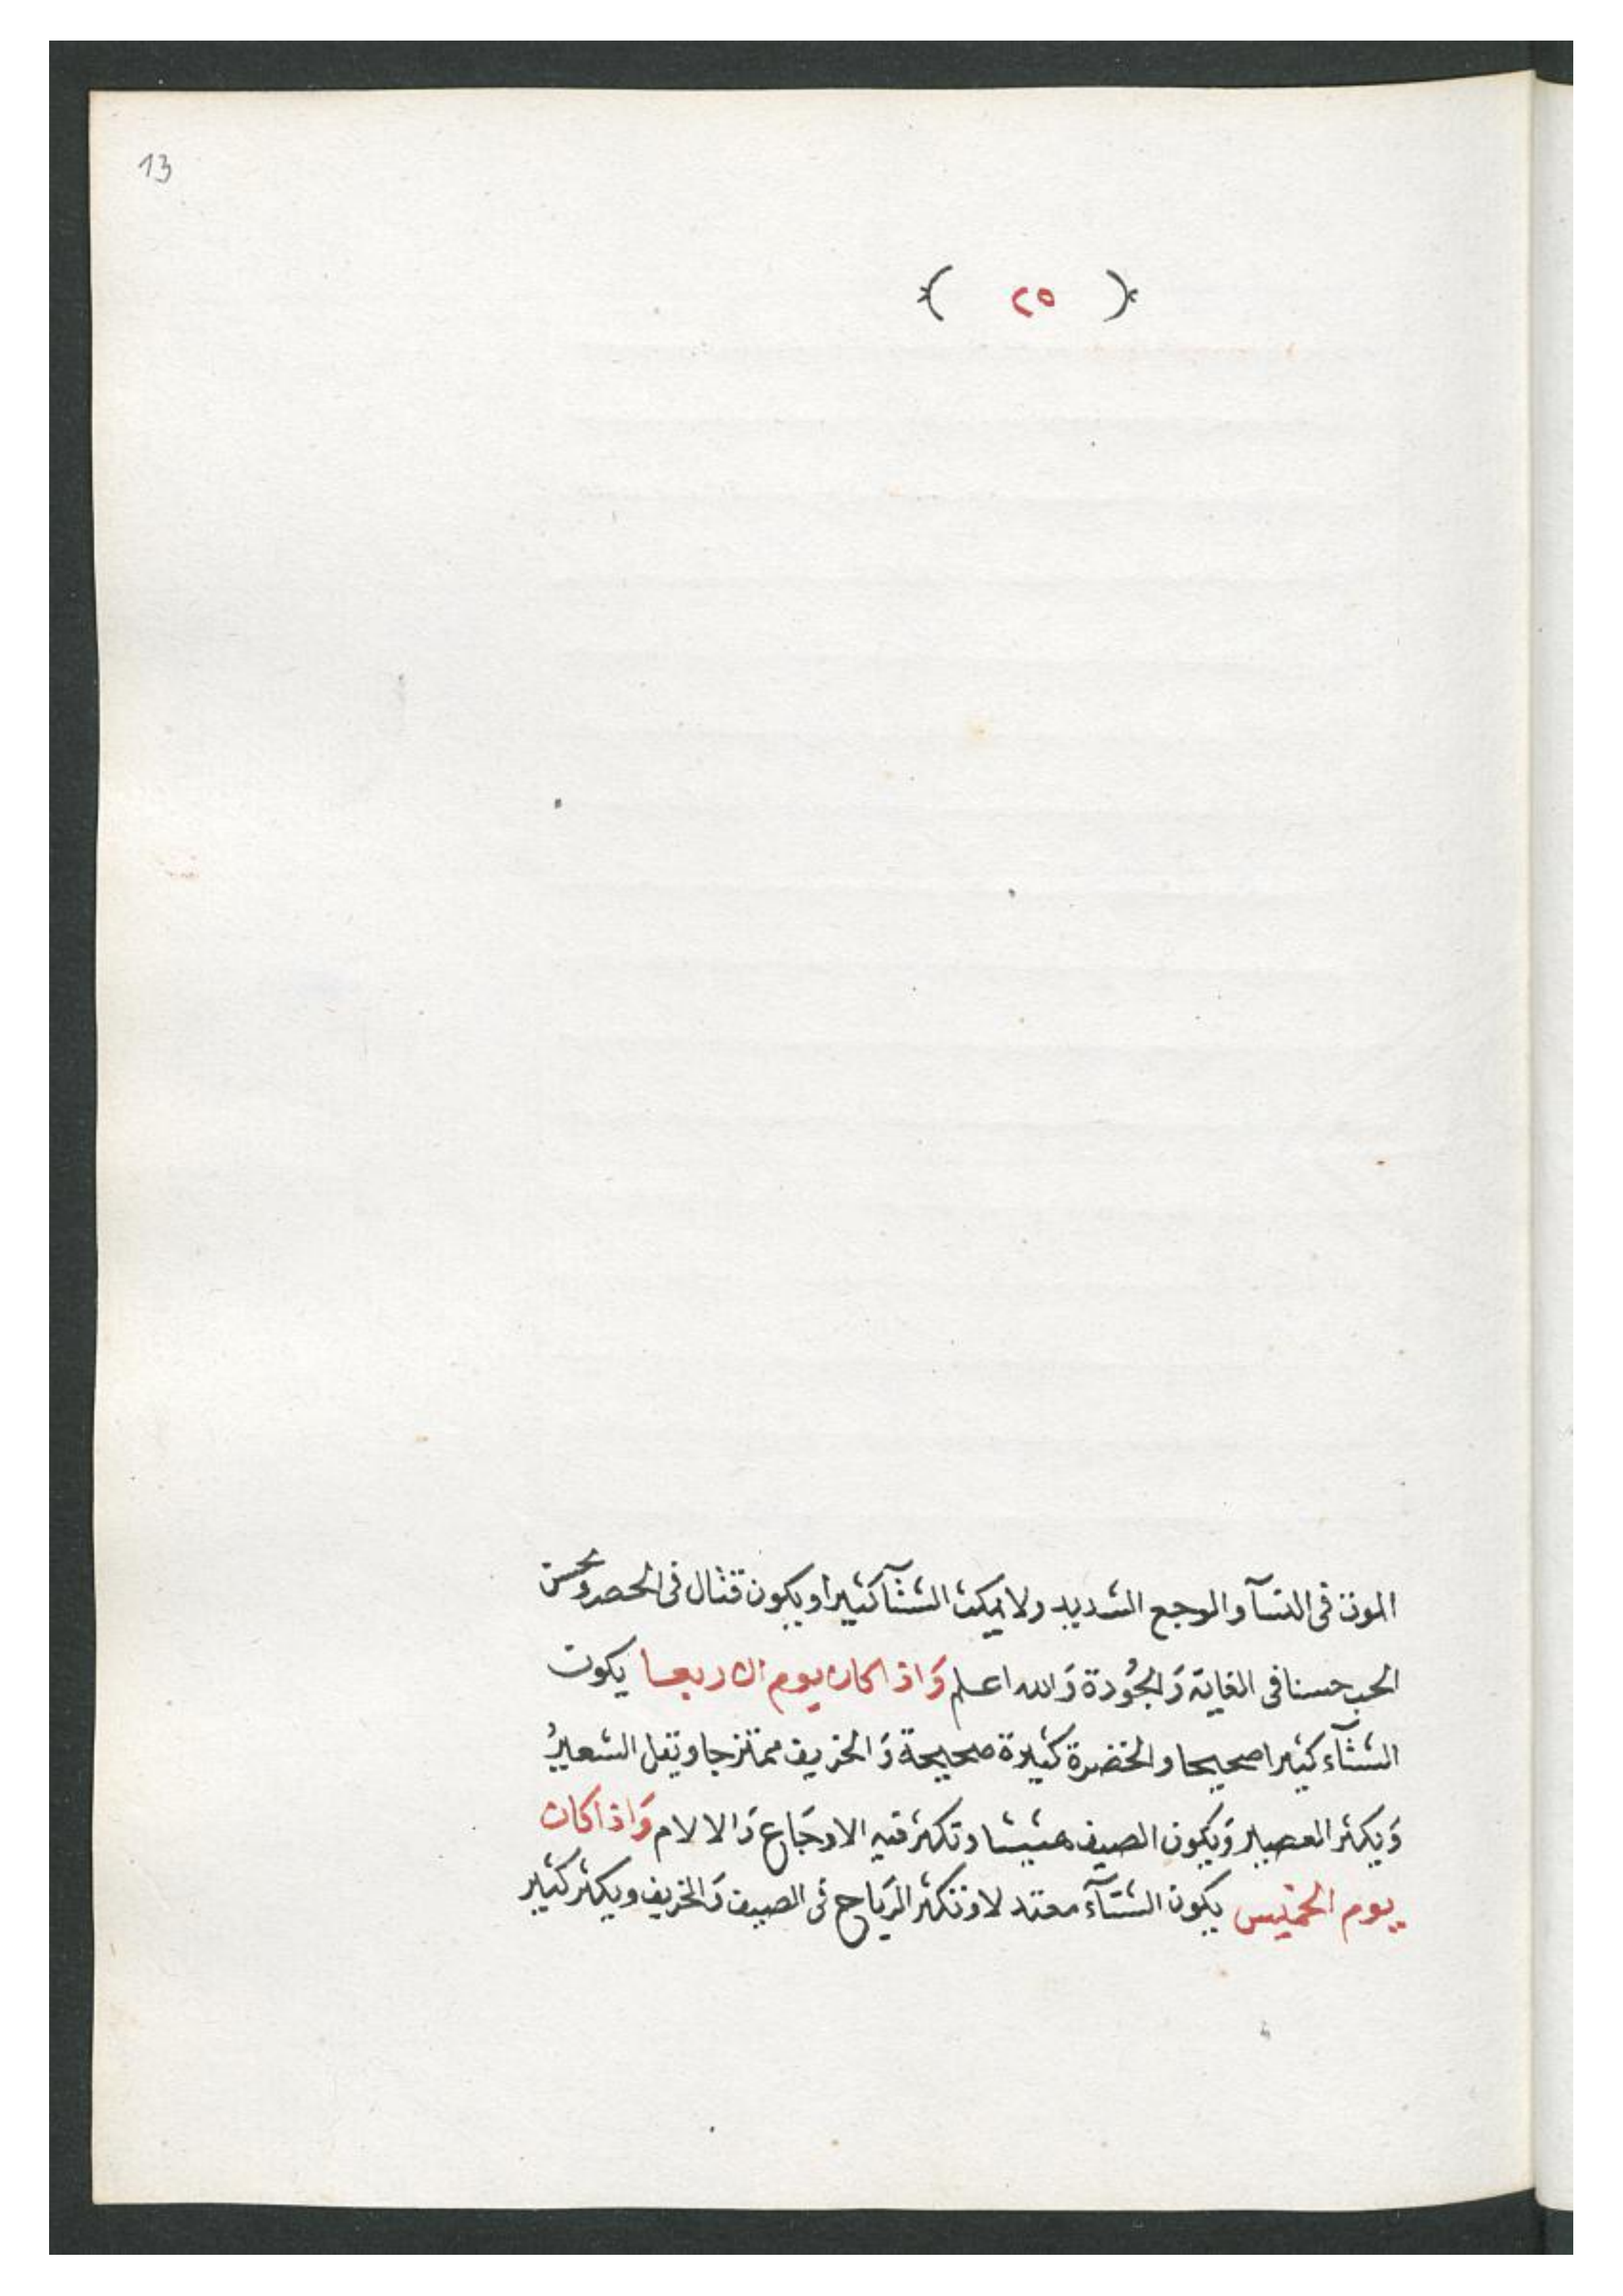 13
( ٢٥ )
الموت فى النسآ والوجع الشديد ولا يمكث الشتآ كثيرا ويكون قتال فى الحصد ويحسن
الحب حسنا فى الغاية وَالجُودة وَالله اعلم وَاذا كان يوم الاربعا يكون
الشتآء كثيرا صحيحا والخضرة كثيرة صحيحة وَالخريف ممتزجا ويقل الشعيرُ
وَيكثر العصير وَيكون الصيف هشيشا وتكثر فيه الاوجَاع وَالالام وَاذا كان
يوم الخميس يكون الشتآء معتدلا وتكثر الرياح فى الصيف وَالخريف ويكثر كثير